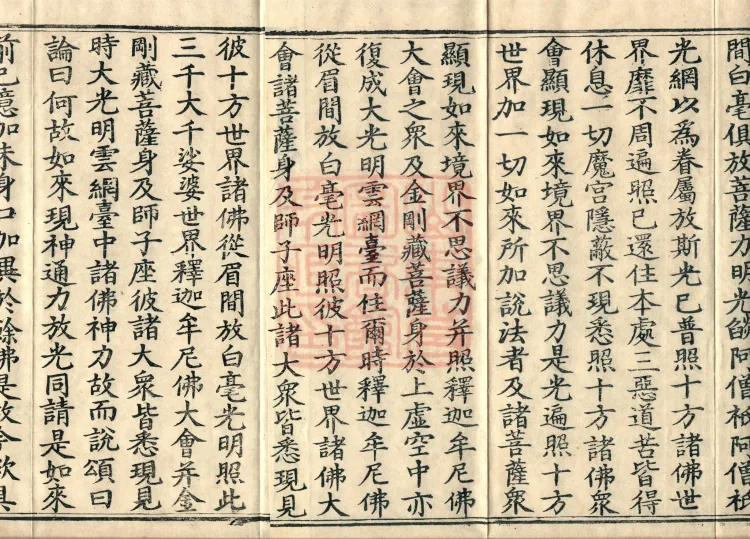 間白毫俱放菩薩力明光焰阿僧祇阿僧祇
光網以為眷屬放斯光已普照十方諸佛世
界靡不周遍照已還住本處三惡道苦皆得
休息一切魔宮隱蔽不現悉照十方諸佛眾
會顯現如來境界不思議力是光遍照十方
世界加一切如來所加說法者及諸菩薩眾
顯現如來境界不思議力并照釋迦牟尼佛
大會之眾及金剛藏菩薩身於上虛空中亦
復成大光明雲網臺而住爾時釋迦牟尼佛
從眉間放白毫光明照彼十方世界諸佛大
會諸菩薩身及師子座此諸大眾皆悉現見
彼十方世界諸佛從眉間放白毫光明照此
三千大千娑婆世界釋迦牟尼佛大會并金
剛藏菩薩身及師子座彼諸大眾皆悉現見
時大光明雲網臺中諸佛神力故而說頌曰
論曰何故如來現神通力放光同請是如來
前已意加未身口加異於餘佛是故今欲具